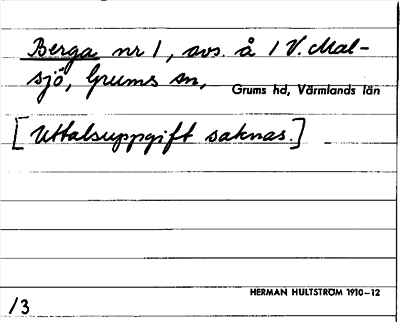 Berga nr 1, avs. å 1 V. Mal-
sjö, Grums sn,
Grums hd, Värmlands län
[Uttalsuppgift saknas.]
HERMAN HULTSTRÖM 1910-12
/3